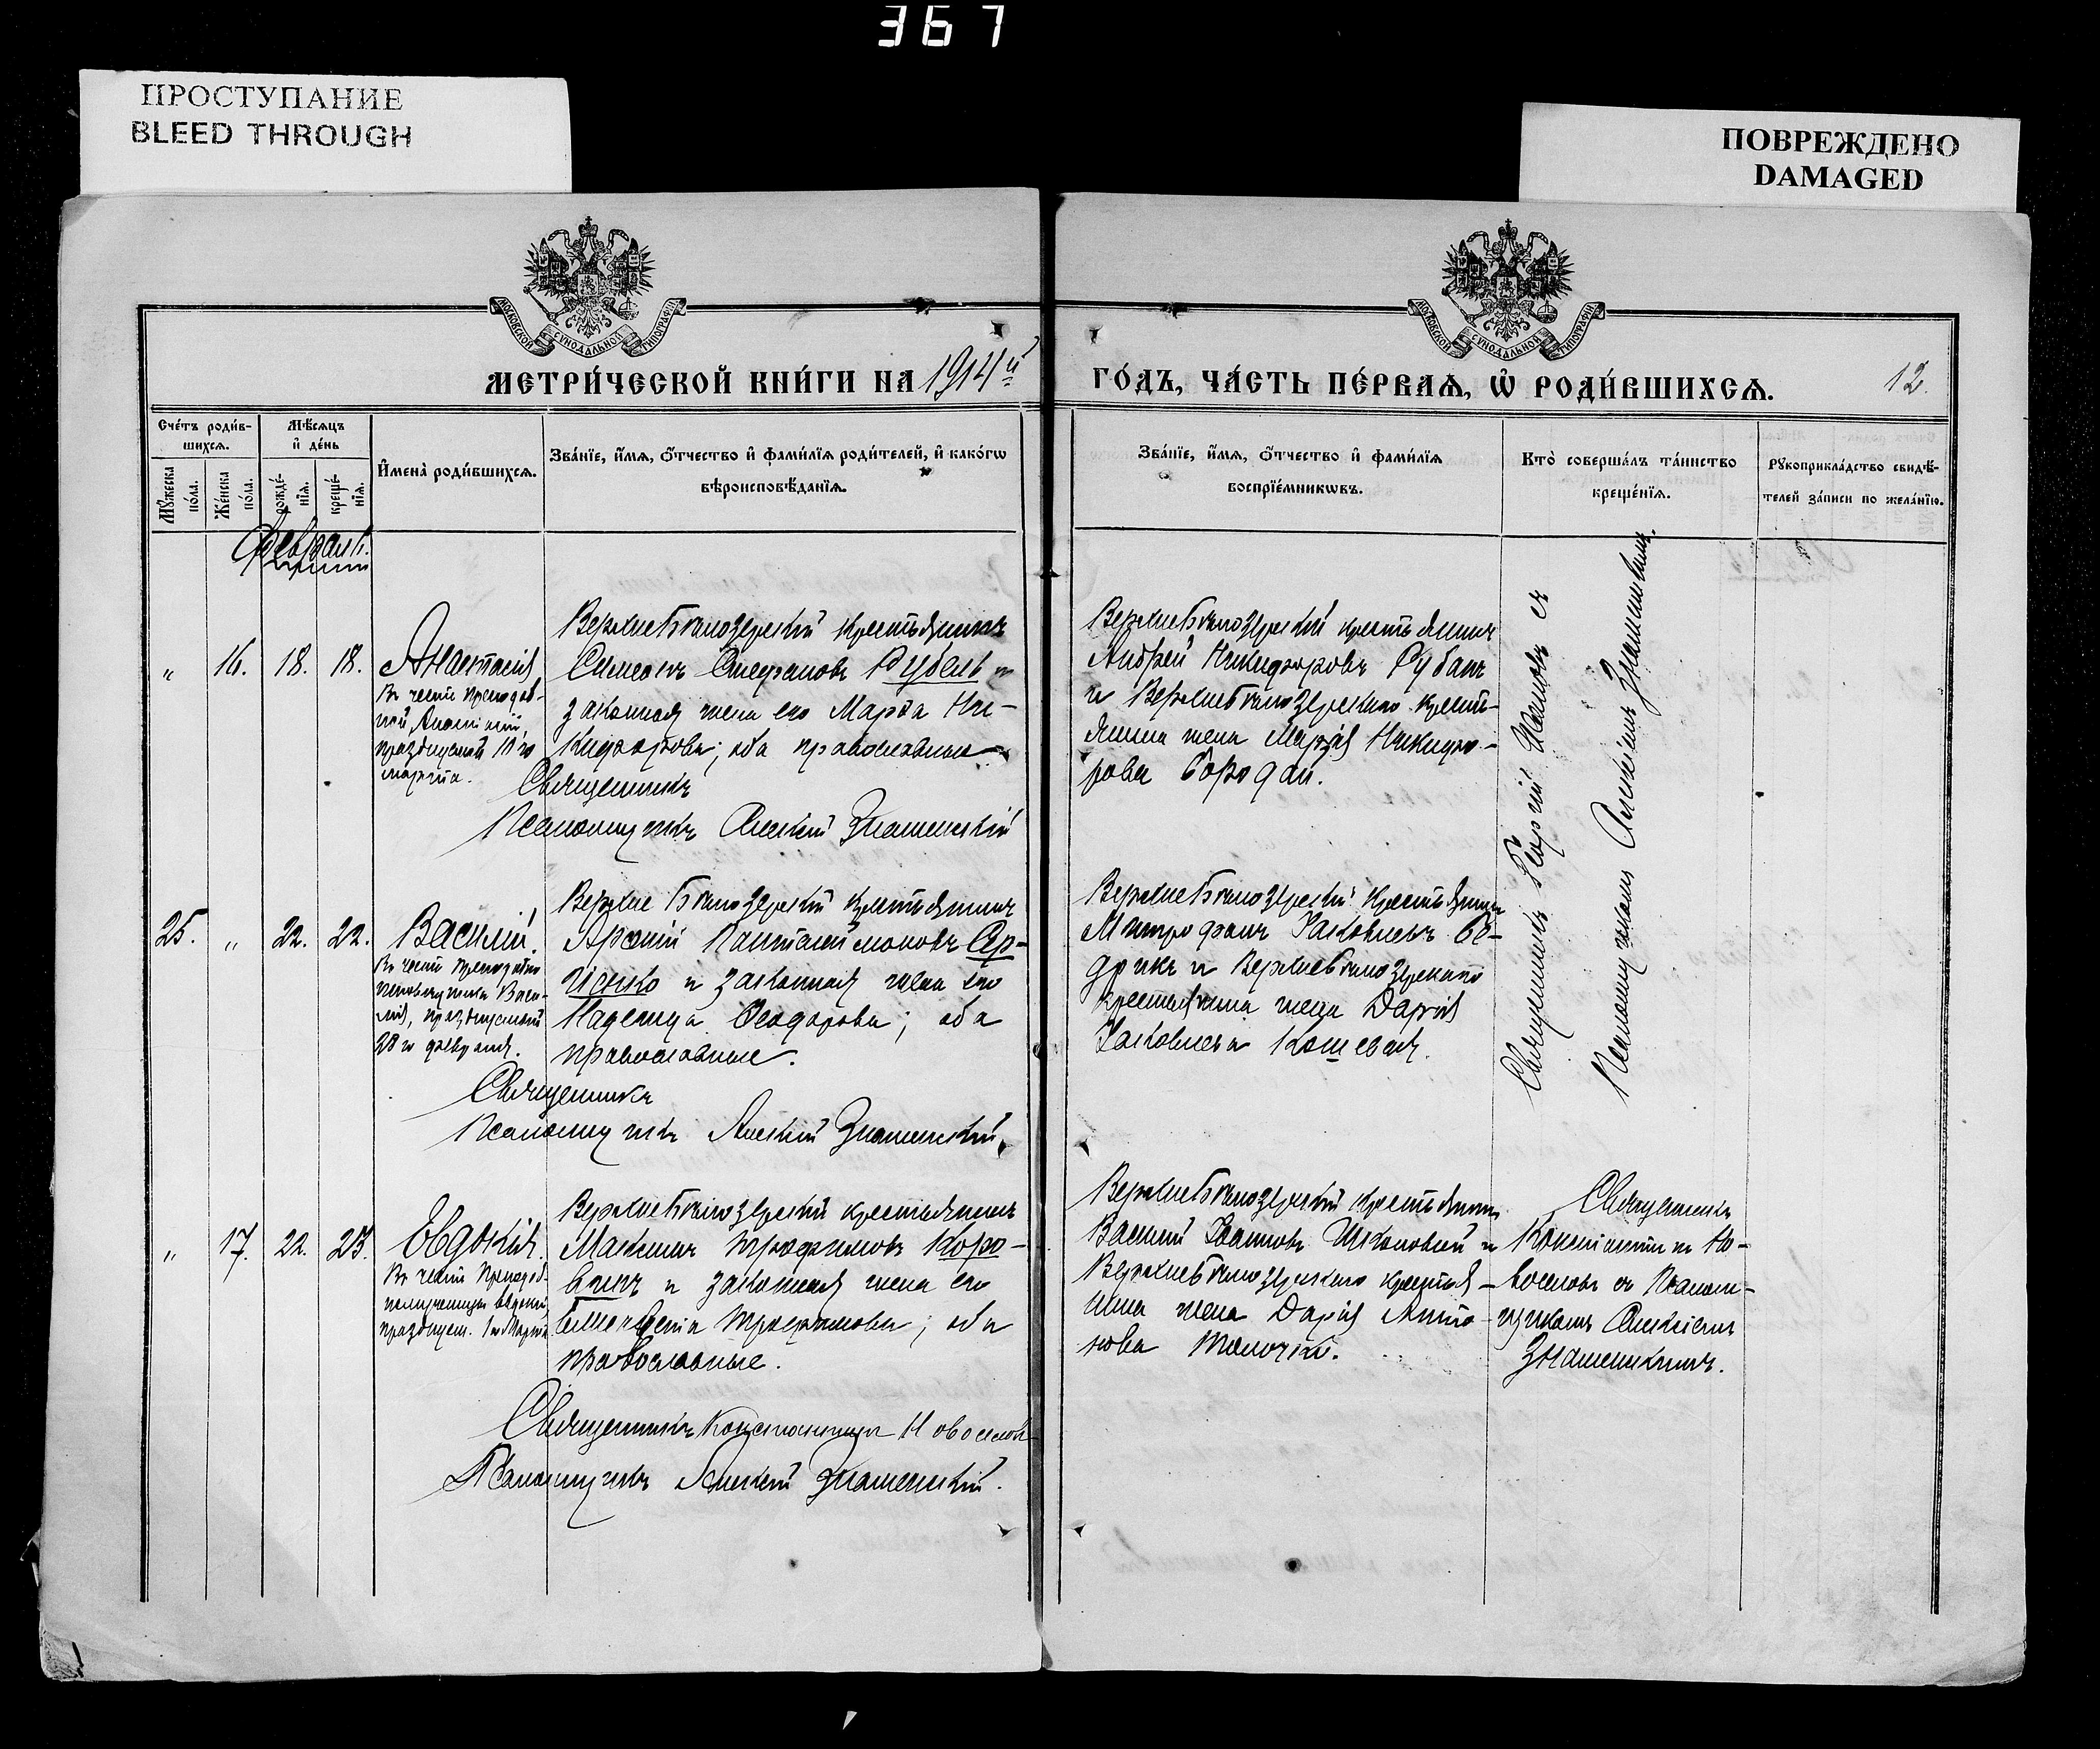 367
ПРОСТУПАНИЕ
BLEED THROUGH
ПОВРЕЖДЕНО
DAMAGED
МОСКОВСКОЙ СѴНОДАЛЬНОЙ ТИПОГРАФІИ
МОСКОВСКОЙ СѴНОДАЛЬНОЙ ТИПОГРАФІИ
МЕТРИ́ЧЕСКОЙ КНИ́ГИ НА 1914й
ГО́ДЪ, ЧА́СТЬ ПЕ́РВАѦ, Ѽ РОДИ́ВШИХСѦ.
12.
Сче́тъ роди́в-
шихсѧ.
Мꙋ́жеска по́ла.
Же́нска по́ла.
Мѣ́сѧцъ и҆ де́нь
рожде́-нїѧ.
креще́-нїѧ.
И҆мена̀ роди́вшихсѧ.
Зва́нїе, и҆́мѧ, ѻ҆́тчество и҆ фами́лїѧ роди́телей, и҆ како́гѡ
вѣроисповѣ́данїѧ.
Зва́нїе, и҆́мѧ, ѻ҆́тчество и҆ фами́лїѧ
воспрїе́мникѡвъ.
Кто̀ соверша́лъ та́инство
креще́нїѧ.
Рꙋкоприкла́дство свидѣ́-
телей за́писи по жела́нїю.
Февраль.
„ 16. 18. 18. Анастасія
Въ честь преподоб-
ной Анастасіи,
празднуемой 10 го
марта.
Верхнебѣлозерскій крестьянинъ
Симеонъ Стефановъ Рубель и
законная жена его Марѳа Ни-
кифорова; оба православные.
Священникъ
Псаломщикъ Алексій Знаменскій
Верхнебѣлозерскій крестьянинъ
Андрей Никифоровъ Рубанъ
и Верхнебѣлозерскаго кресть-
янина жена Марія Никифо-
рова Бородай.
Священникъ Георгій Ивановъ съ
Псаломщикомъ Алексіемъ Знаменскимъ.
25. „ 22. 22. Василій.
Въ честь преподобно
исповѣдника Васи-
лія, празднуемаго
28 го февраля.
Верхнебѣлозерскій крестьянинъ
Пантелеимоновъ
и законная жена его
Надежда Ѳеодорова; оба
православные.
Священникъ
Псаломщикъ Алексій Знаменскій.
Верхнебѣлозерскій крестьянинъ
Митрофанъ Іаковлевъ Бе-
дрикъ и Верхнебѣлозерскаго
крестьянина жена Дарія
Іаковлева Кошевая.
„ 17. 22. 23. Евдокія.
Въ честь Преподоб-
номученицы Евдокіи,
празднуем. 1 го Марта
Верхнебѣлозерскій крестьянинъ
Максимъ Трофимовъ Коро-
бкинъ и законная жена его
Елисавета Трофимова; оба
православные.
Священникъ Константинъ Новоселовъ
Псаломщикъ Алексій Знаменскій.
Верхнебѣлозерскій крестьянинъ
Василій Іоанновъ и
Верхнебѣлозерскаго крестья-
нина жена Дарія Анто-
нова Толочко.
Священникъ
Константинъ Но-
воселовъ съ Псалом-
щикомъ Алексіемъ
Знаменскимъ.